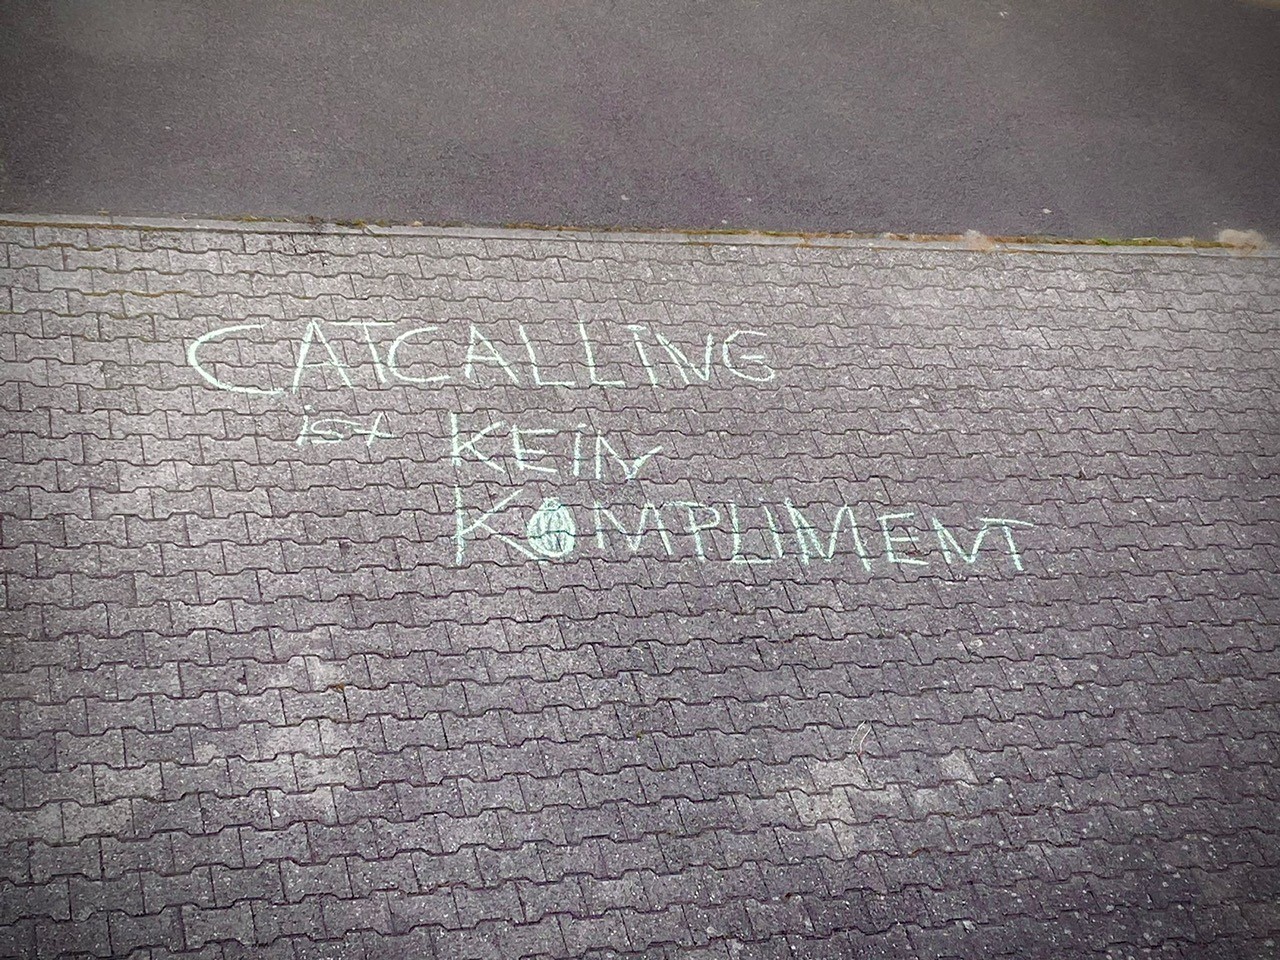 CATCALLING
ist KEIN
KOMPLIMENT